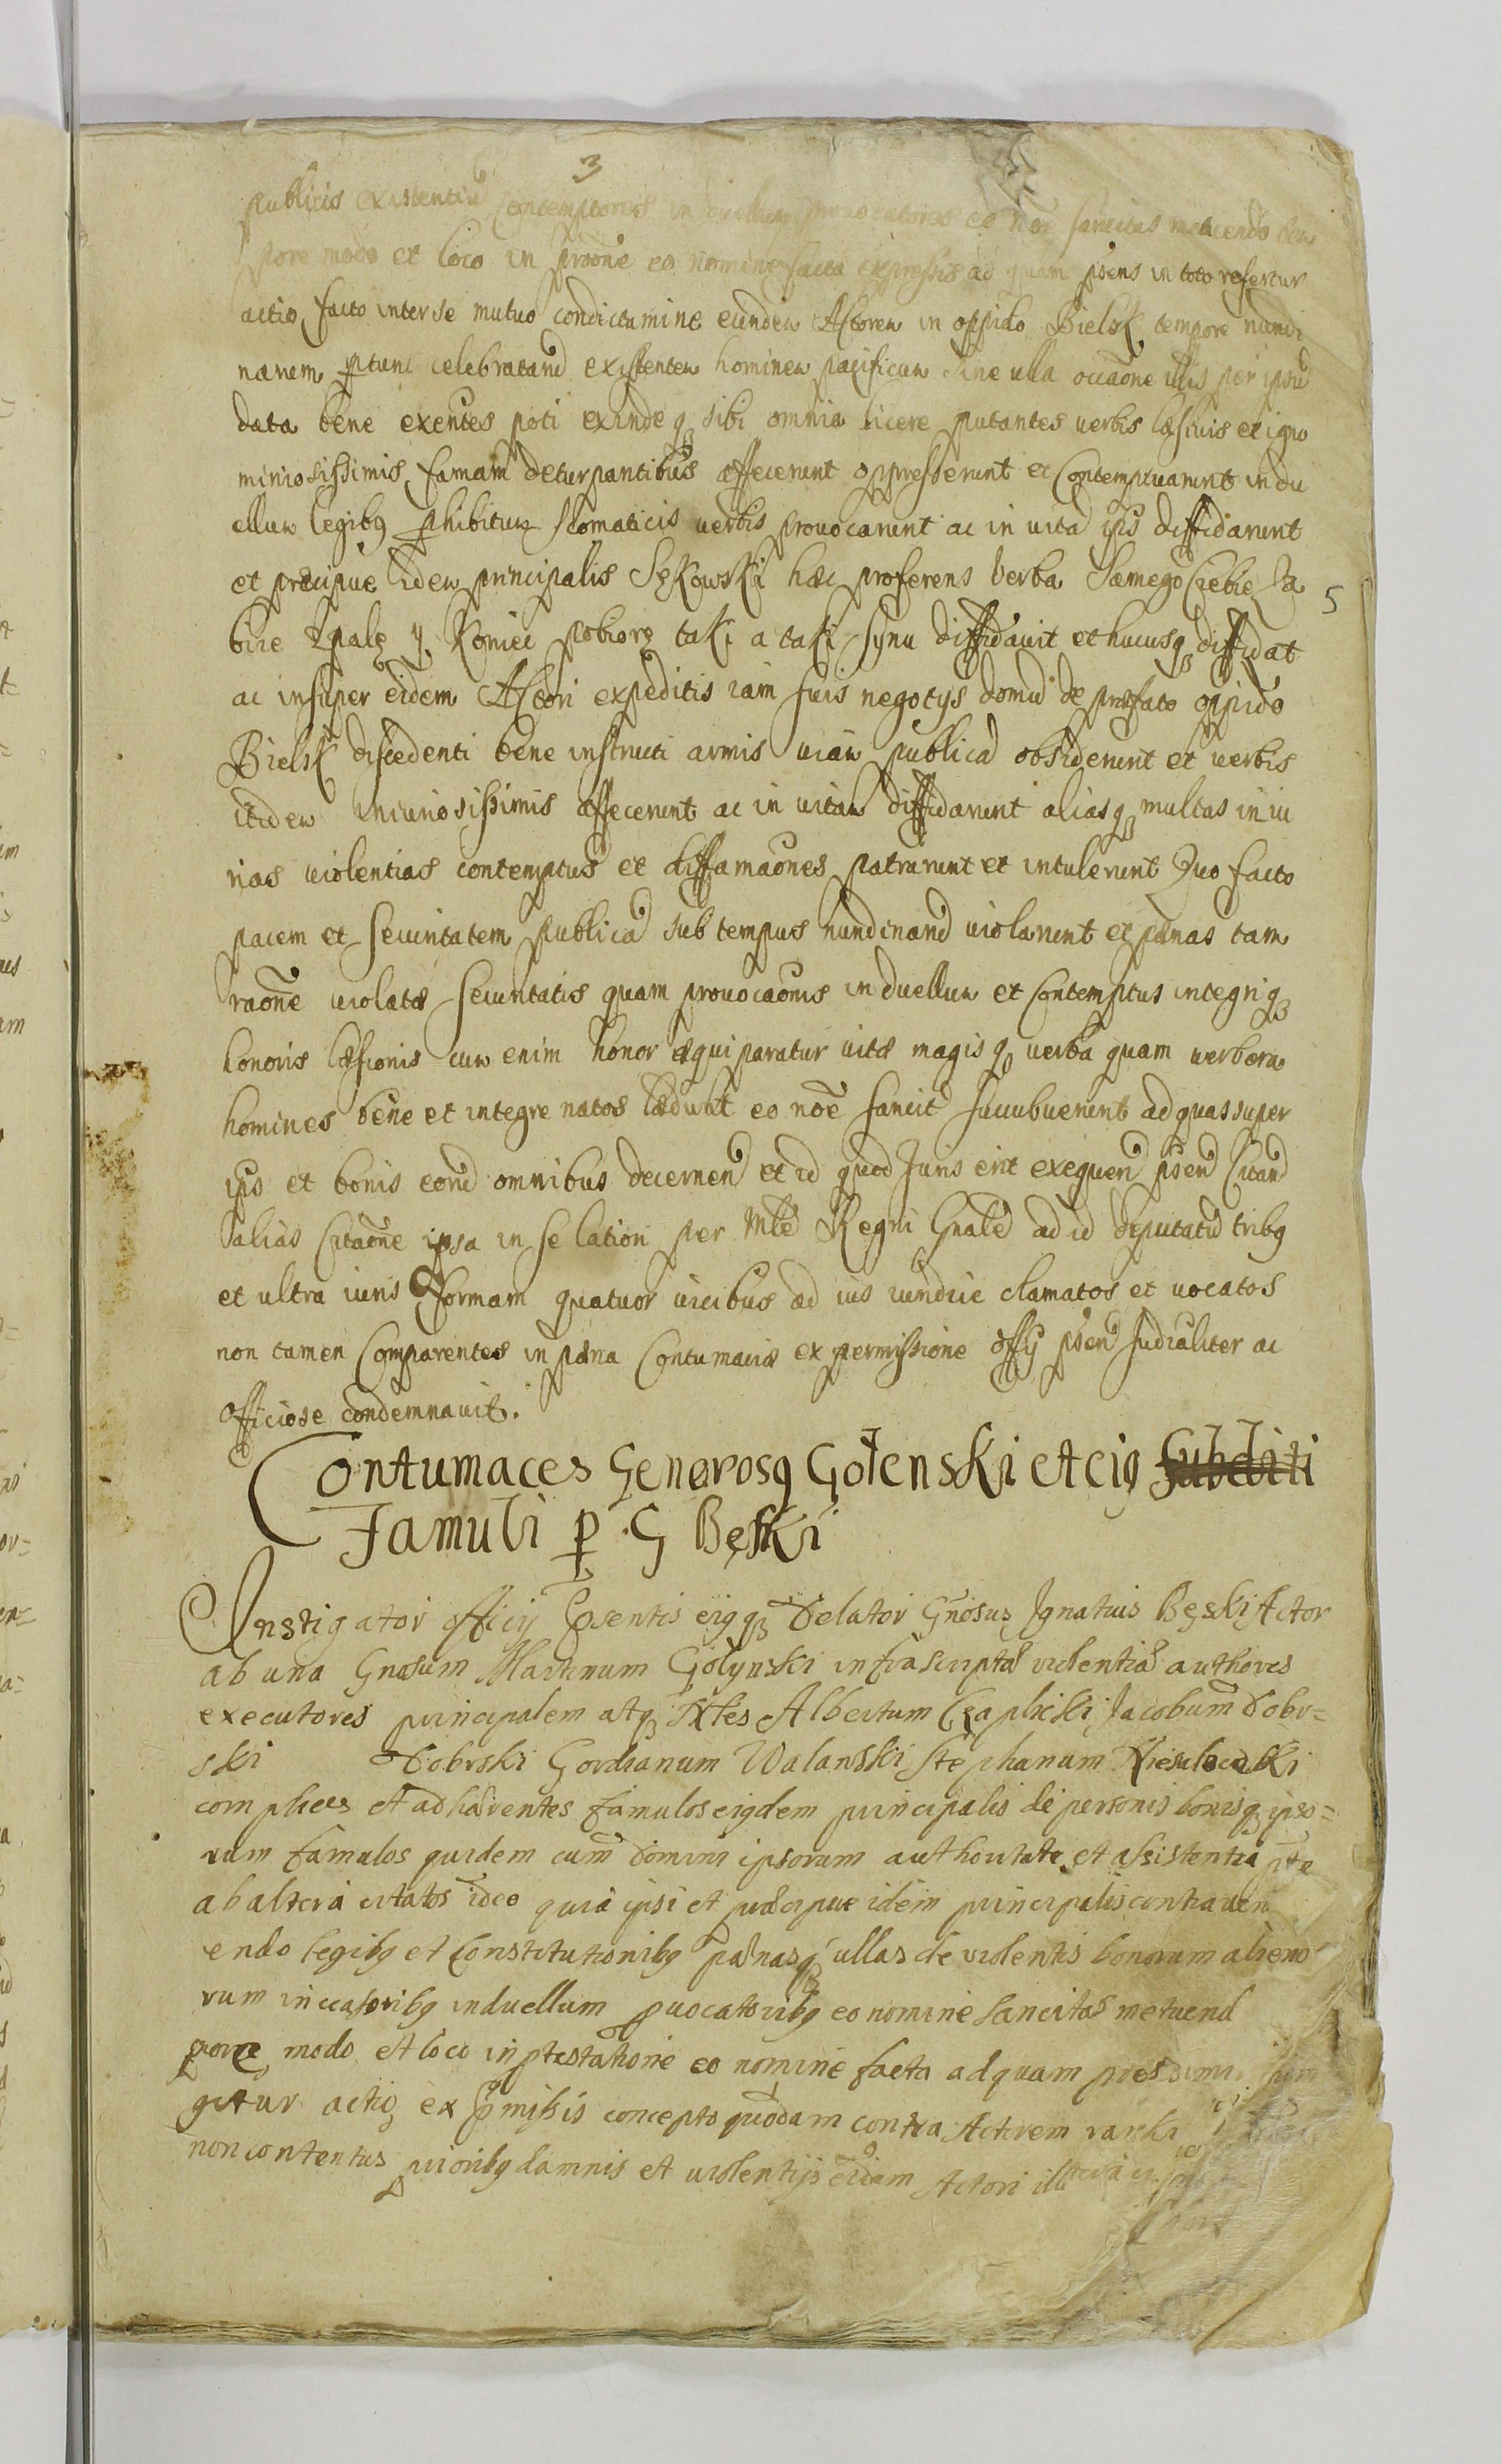 3
publicis existentiũ Contemptores in duellum provocatores eo nõe sancitas metuendo tem
pore modo et loco in prõõne eo nomine facta expressis ad quam psens in toto refertur
actio, facto inter se mutuo condictamine eundem Actorem in oppido Bielsk tempore nundi
narum ptunc celebratarũ existentem hominem pacificum sine ulla occaõne illis per ipsũ
data bene exentes poti exindeq sibi omnia licere putantes verbis læsivis et igno
miniosissimis, famam deturpantibus affecerunt oppresserunt et Contemptuarunt in du
ellum legibq phibitum stomaticis verbis provocarunt ac in vita ips diffidarunt
et præcipue idem principalis Sękowski hæc proferens verba Samego Ciebie za
5
biie Zpalę y Koniec pobiorę taki a taki synu diffidavit et hucusq diffidat
ac insuper eidem Actori expeditis iam suis negotys domũ de præfato oppido
Bielsk discedenti bene instructi armis viam publicã obsiderunt et verbis
itidem iniuriosissimis affecerunt ac in vitam diffidarunt aliasq multas iniu
rias violentias contemptus et diffamaões patrarunt et intulerunt Quo facto
pacem et securitatem publicã sub tempus nundinarũ violarunt et pænas tam
raõne violatæ securitatis quam provocaõnis in duellum et Contemptus integriq
honoris læsionis cum enim honor æquiparatur vitæ magisq verba quam verbera
homines bene et integre natos lædunt eo nõe sancit succubuerunt ad quas super
ips et bonis eorũ omnibus decernen et id quod Juris erit exequen psen Citan
alias Citaõne ipsa in se lation per Mlẽ Regni Gnalẽ ad id deputatũ tribq
et ultra iuris formam quatuor vicibus ad ius iuridice clamatos et vocatos
non tamen Comparentes in pæna Contumaciæ ex permissione offy psen Judicialiter ac
officiose condemnavit.
Contumaces Generosq Golenski et eiq Subditi
Famuli p G Bęski
Instigator officij psentis eiqq Delator Gnosus Ignatius Bęski Actor
ab una Gnosum Martinum Golynski infrascriptæ violentiæ authores
executores principalem atq Altes Albertum Czaplicki Jacobum Dobr=
ski Dobrski Gordianum Walanski Stephanum
complices et adhærentes famulos eiqdem principalis de personis bonisq ipso=
rum famulos quidem cum domini ipsorum authoritate et assistentia pte
ab altera citatos ideo quia ipsi et præcipue idem principalis contraven
endo legibq et Constitutionibq pænasq ullas de violentis bonorum alieno
rum invasoribq in duellum pvocatoribq eo nomine sancitas metuend
pore modo et loco in ptestatione eo nomine facta ad quam
gitur actio, ex pmissis concepto quodam contra Actorem
non contentus prioribq damnis et violentijs eidem Actori